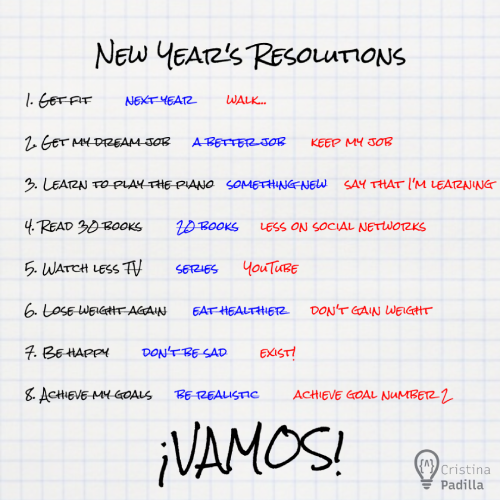 New Year's Resolutions
1. Get fit next year walk...
2. Get my dream job a better job keep my job
3. Learn to play the piano something new say that I'm learning
4. Read 30 books 20 books less on social networks
5. Watch less TV series YouTube
6. Lose weight again eat healthier don't gain weight
7. Be happy don't be sad exist!
8. Achieve my goals be realistic achieve goal number 2
¡VAMOS!
Cristina
Padilla